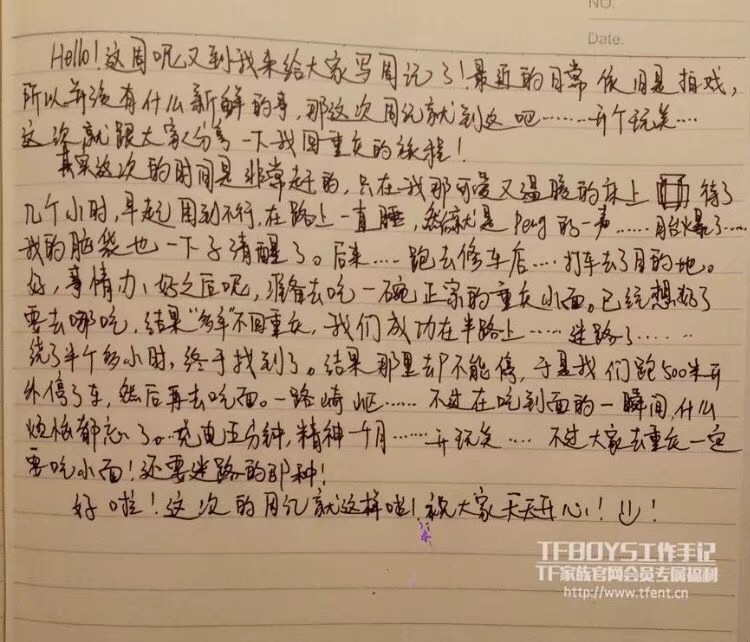 NO.
Date.
Hello!这周呢又到我来给大家写周记了!最近的日常依旧是拍戏,
所以并没有什么新鲜的事,那这次周记就到这吧………开个玩笑….
这次就跟大家分享一下我回重庆的旅程!
其实这次的时间是非常赶的,只在我那可爱又温暖的床上待了
几个小时,早起困到不行,在路上一直睡,然后就是Peng的一声……胎爆了…..
我的脑袋也一下子清醒了。后来….跑去修车店….打车去了目的地。
好,事情办好之后呢,准备去吃一碗正宗的重庆小面。已经想好了
要去哪吃,结果"多年"不回重庆,我们成功在半路上……迷路了……
绕了半个多小时,终于找到了。结果那里却不能停,于是我们跑500米开
外停了车,然后再去吃面。一路崎岖……不过在吃到面的一瞬间,什么
烦恼都忘了。充电五分钟,精神一个月……开玩笑….不过大家去重庆一定
要吃小面!还要迷路的那种!
好啦!这次的周记就这样啦!祝大家天天开心!!
TFBOYS工作手记
TF家族官网会员专属福利
http://www.tfent.cn